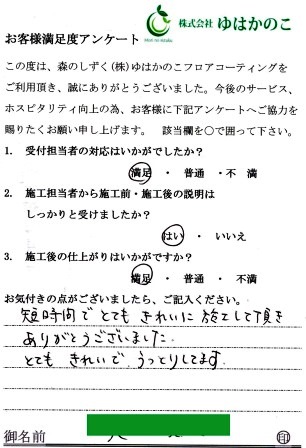 Mori no shizuku
株式会社 ゆはかのこ
お客様満足度アンケート
この度は、森のしずく(株)ゆはかのこフロアコーティングを
ご利用頂き、誠にありがとうございました。今後のサービス、
ホスピタリティ向上の為、お客様に下記アンケートへご協力を
賜りたくお願い申し上げます。 該当欄を○で囲って下さい。
1. 受付担当者の対応はいかがでしたか？
満足 ・ 普通 ・不 満
2. 施工担当者から施工前・施工後の説明は
しっかりと受けましたか？
はい ・ いいえ
3. 施工後の仕上がりはいかがですか？
満足 ・ 普通 ・ 不満
お気付きの点がございましたら、ご記入ください。
短時間で とても きれいに 施工して頂き
ありがとうございました.
とても きれいで、うっとりしてます.
御名前 ㊞